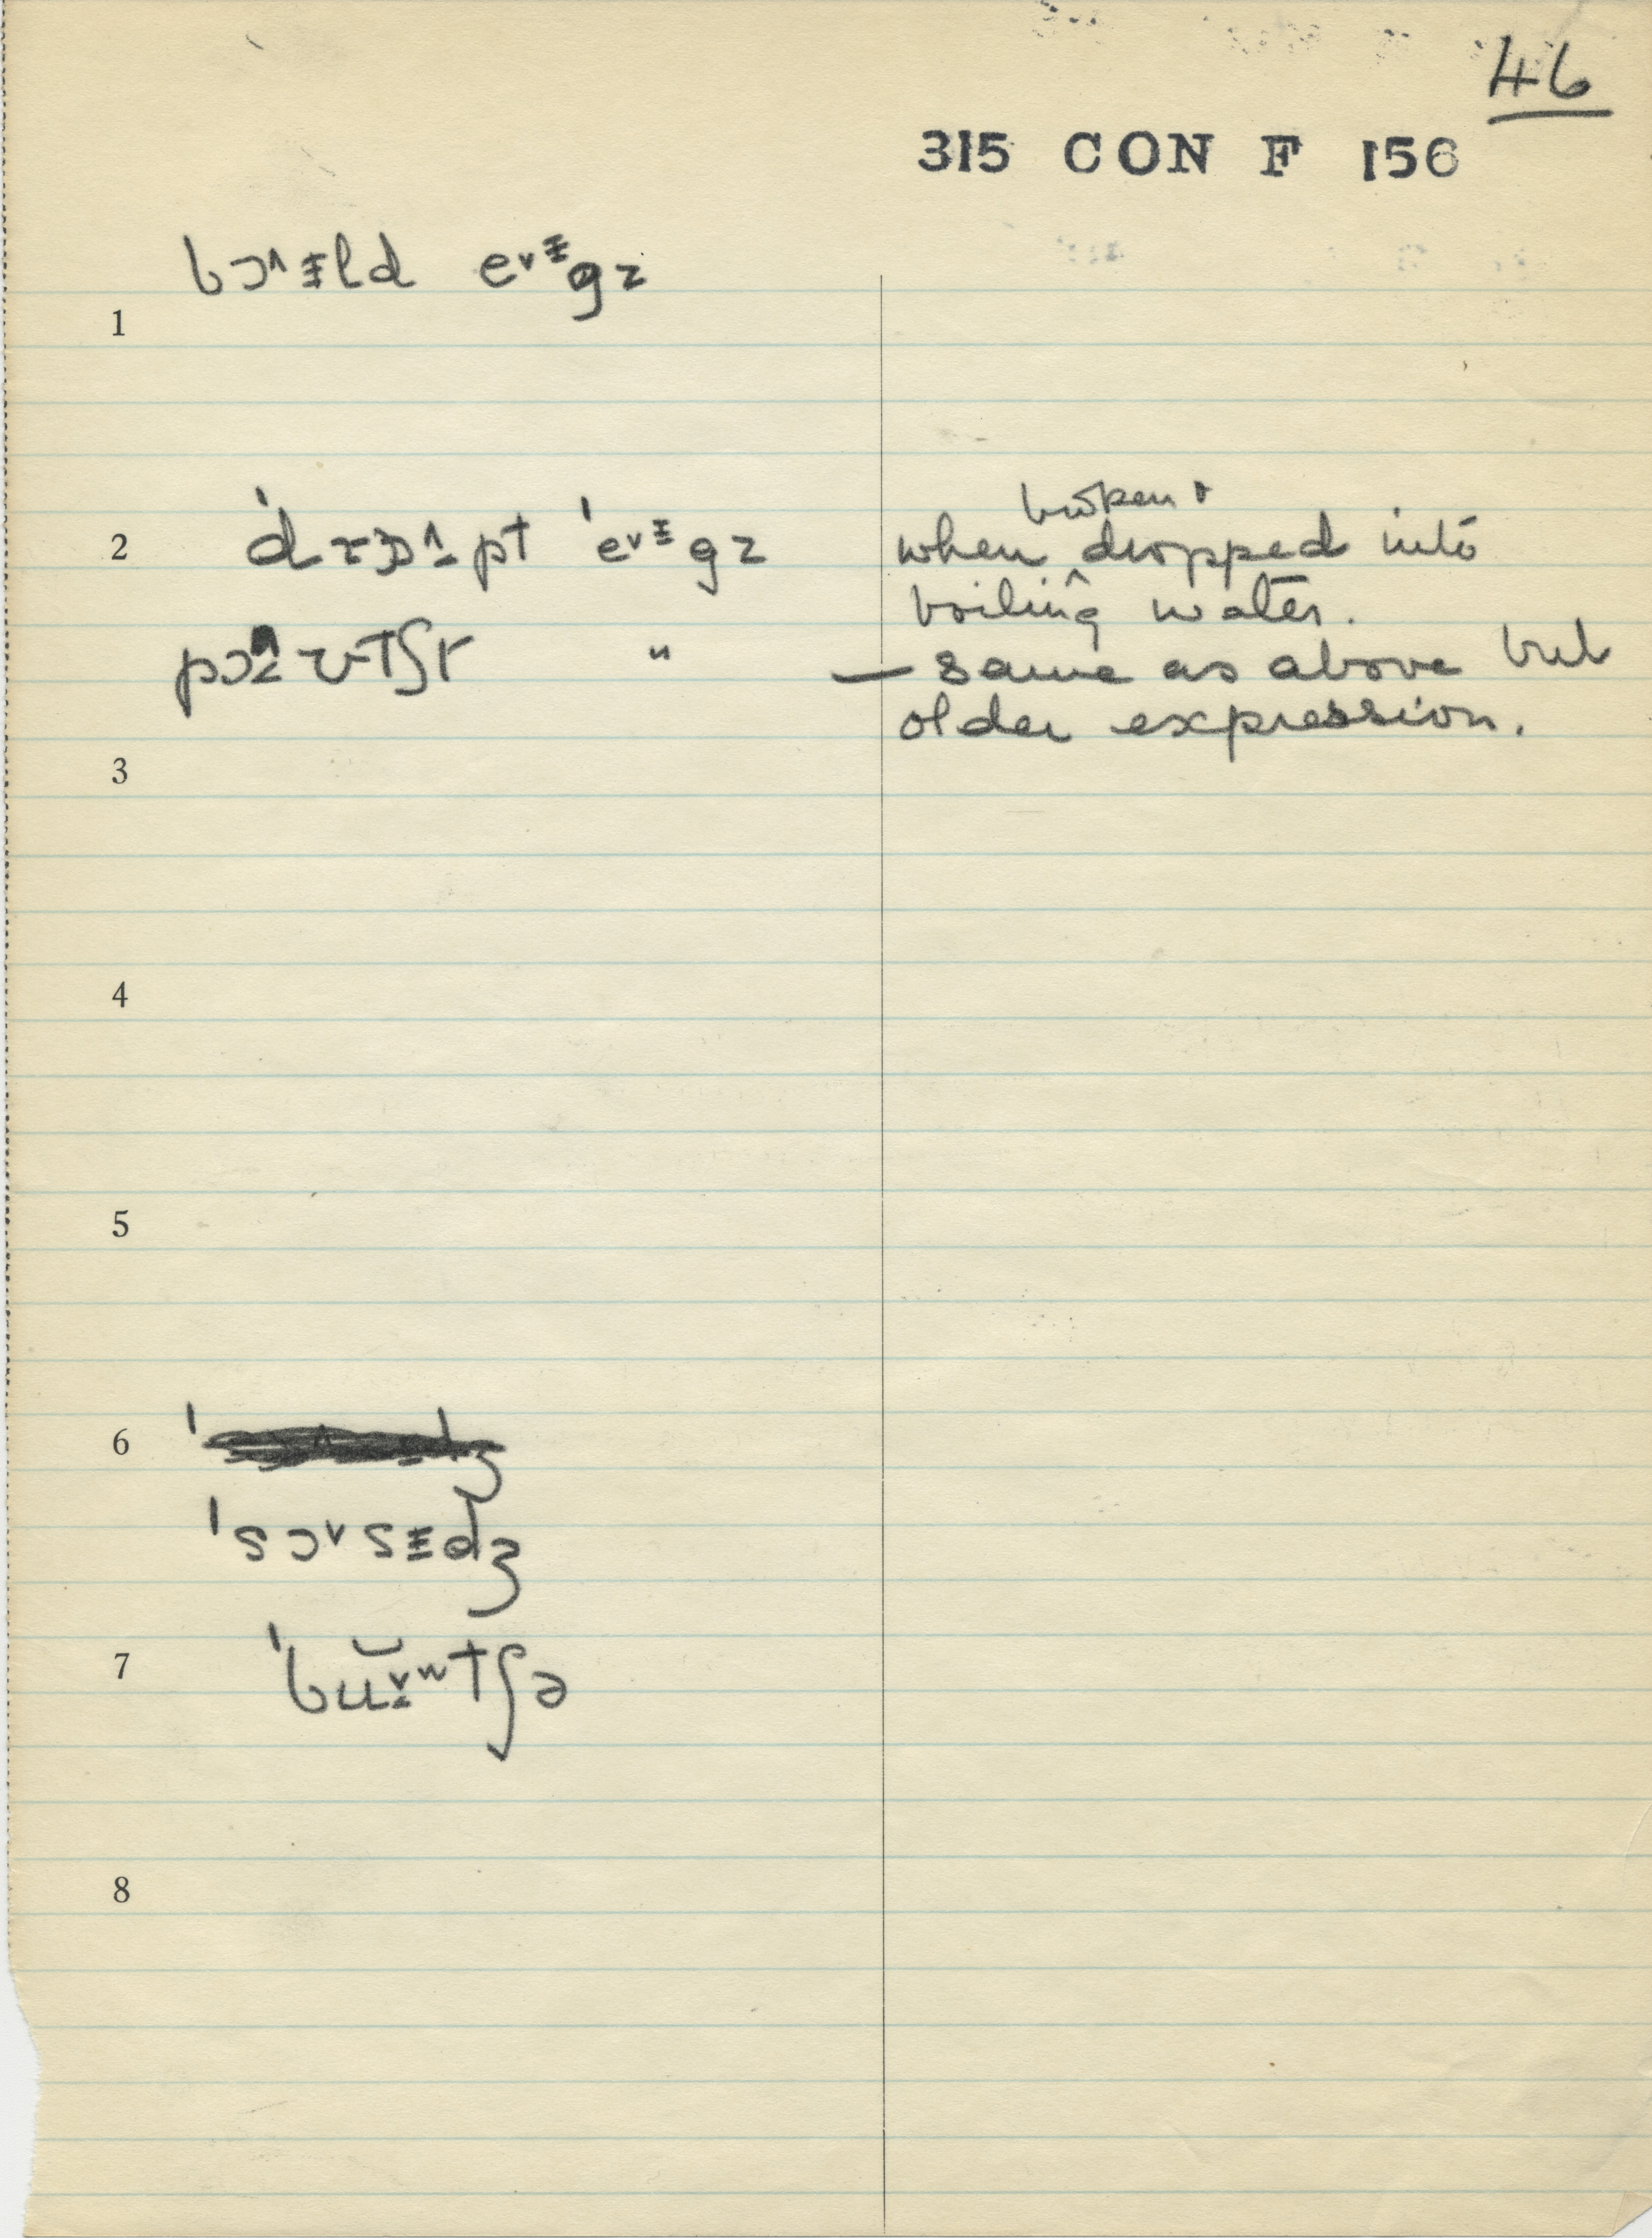 46
315 CON F 156
bɔ˄ɨld e˅ɨgz
1
broken &
2 ˈdrɒ˄pt ˈe˅ɨgz when dropped into
boiling water.
pɔ˄ʊtʃt " — same as above but
older expression.
3
4
5
6
ˈsɔ˅sɨdʒ
7 ˈbu˅tʃə
8